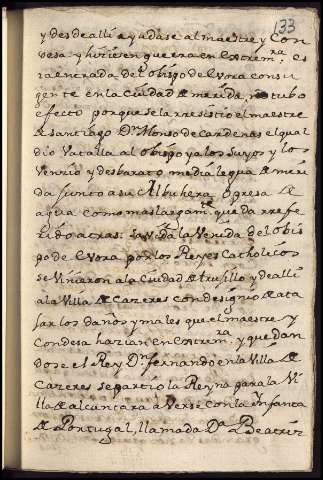 133
y desde alli ayudase al maestre y Con
desa y hiziesen guerra en Extrem.ra es
ta entrada del obispo de Evora con su
gente en la Ciudad de merida, no tubo
efecto porque se la rresistio el maestre
de santiago Dn. Alonso de Cardenas el qual
dio Vatalla al obispo ya los suyos y los
Vencio y desbarato, media legua de meri
da junto a su Albuhera, o presa de
agua como mas largam.te queda rrefe
rido atras. Savida la Venida del obis
po de Evora por los Reyes Catholicos
se Vinieron a la Ciudad de trusillo y de alli
a la Villa de Cazeres con designio de ata
jar los daños y males que el maestre y
Condesa hazian en Extrem.ra y quedan
dose el Rey Dn. fernando en la Villa de
Cazeres se partio la Reyna para la Vi
lla de alcantara a Verse con la Infanta
de Portugal, llamada Da. Beatriz